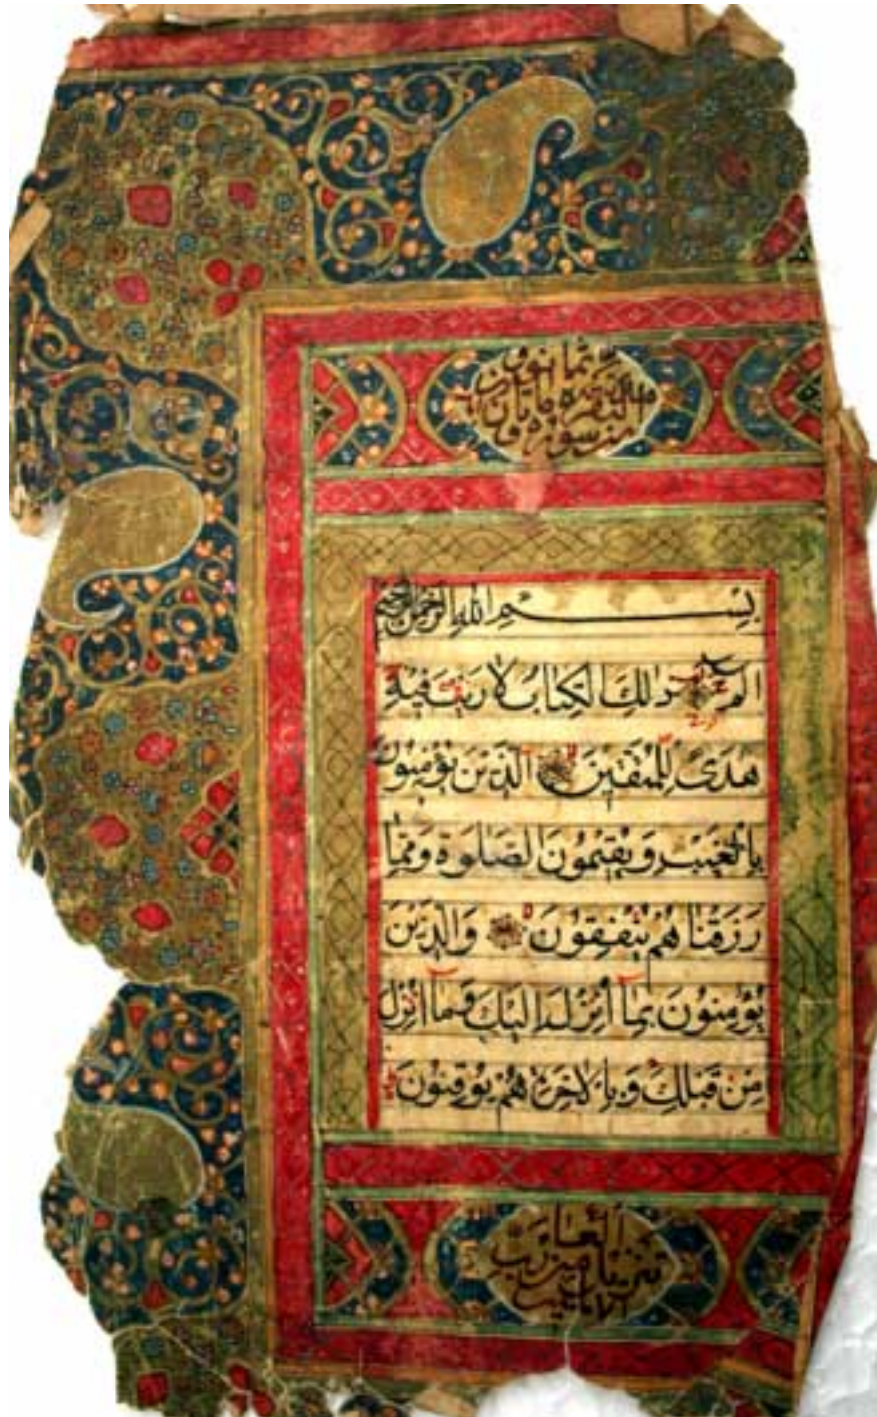 سورة البقرة مائتان وثمانون
بِسْمِ اللهِ الرَّحْمٰنِ الرَّحِيْمِ
الم ذٰلِكَ الْكِتَابُ لَا رَيْبَ فِيْهِ
هُدًى لِلْمُتَّقِيْنَ الَّذِيْنَ يُؤْمِنُوْنَ
بِالْغَيْبِ وَيُقِيْمُوْنَ الصَّلٰوةَ وَمِمَّا
رَزَقْنَاهُمْ يُنْفِقُوْنَ وَالَّذِيْنَ
يُؤْمِنُوْنَ بِمَا اُنْزِلَ اِلَيْكَ وَمَا اُنْزِلَ
مِنْ قَبْلِكَ وَبِالْاٰخِرَةِ هُمْ يُوْقِنُوْنَ
تنزيل من رب العالمين